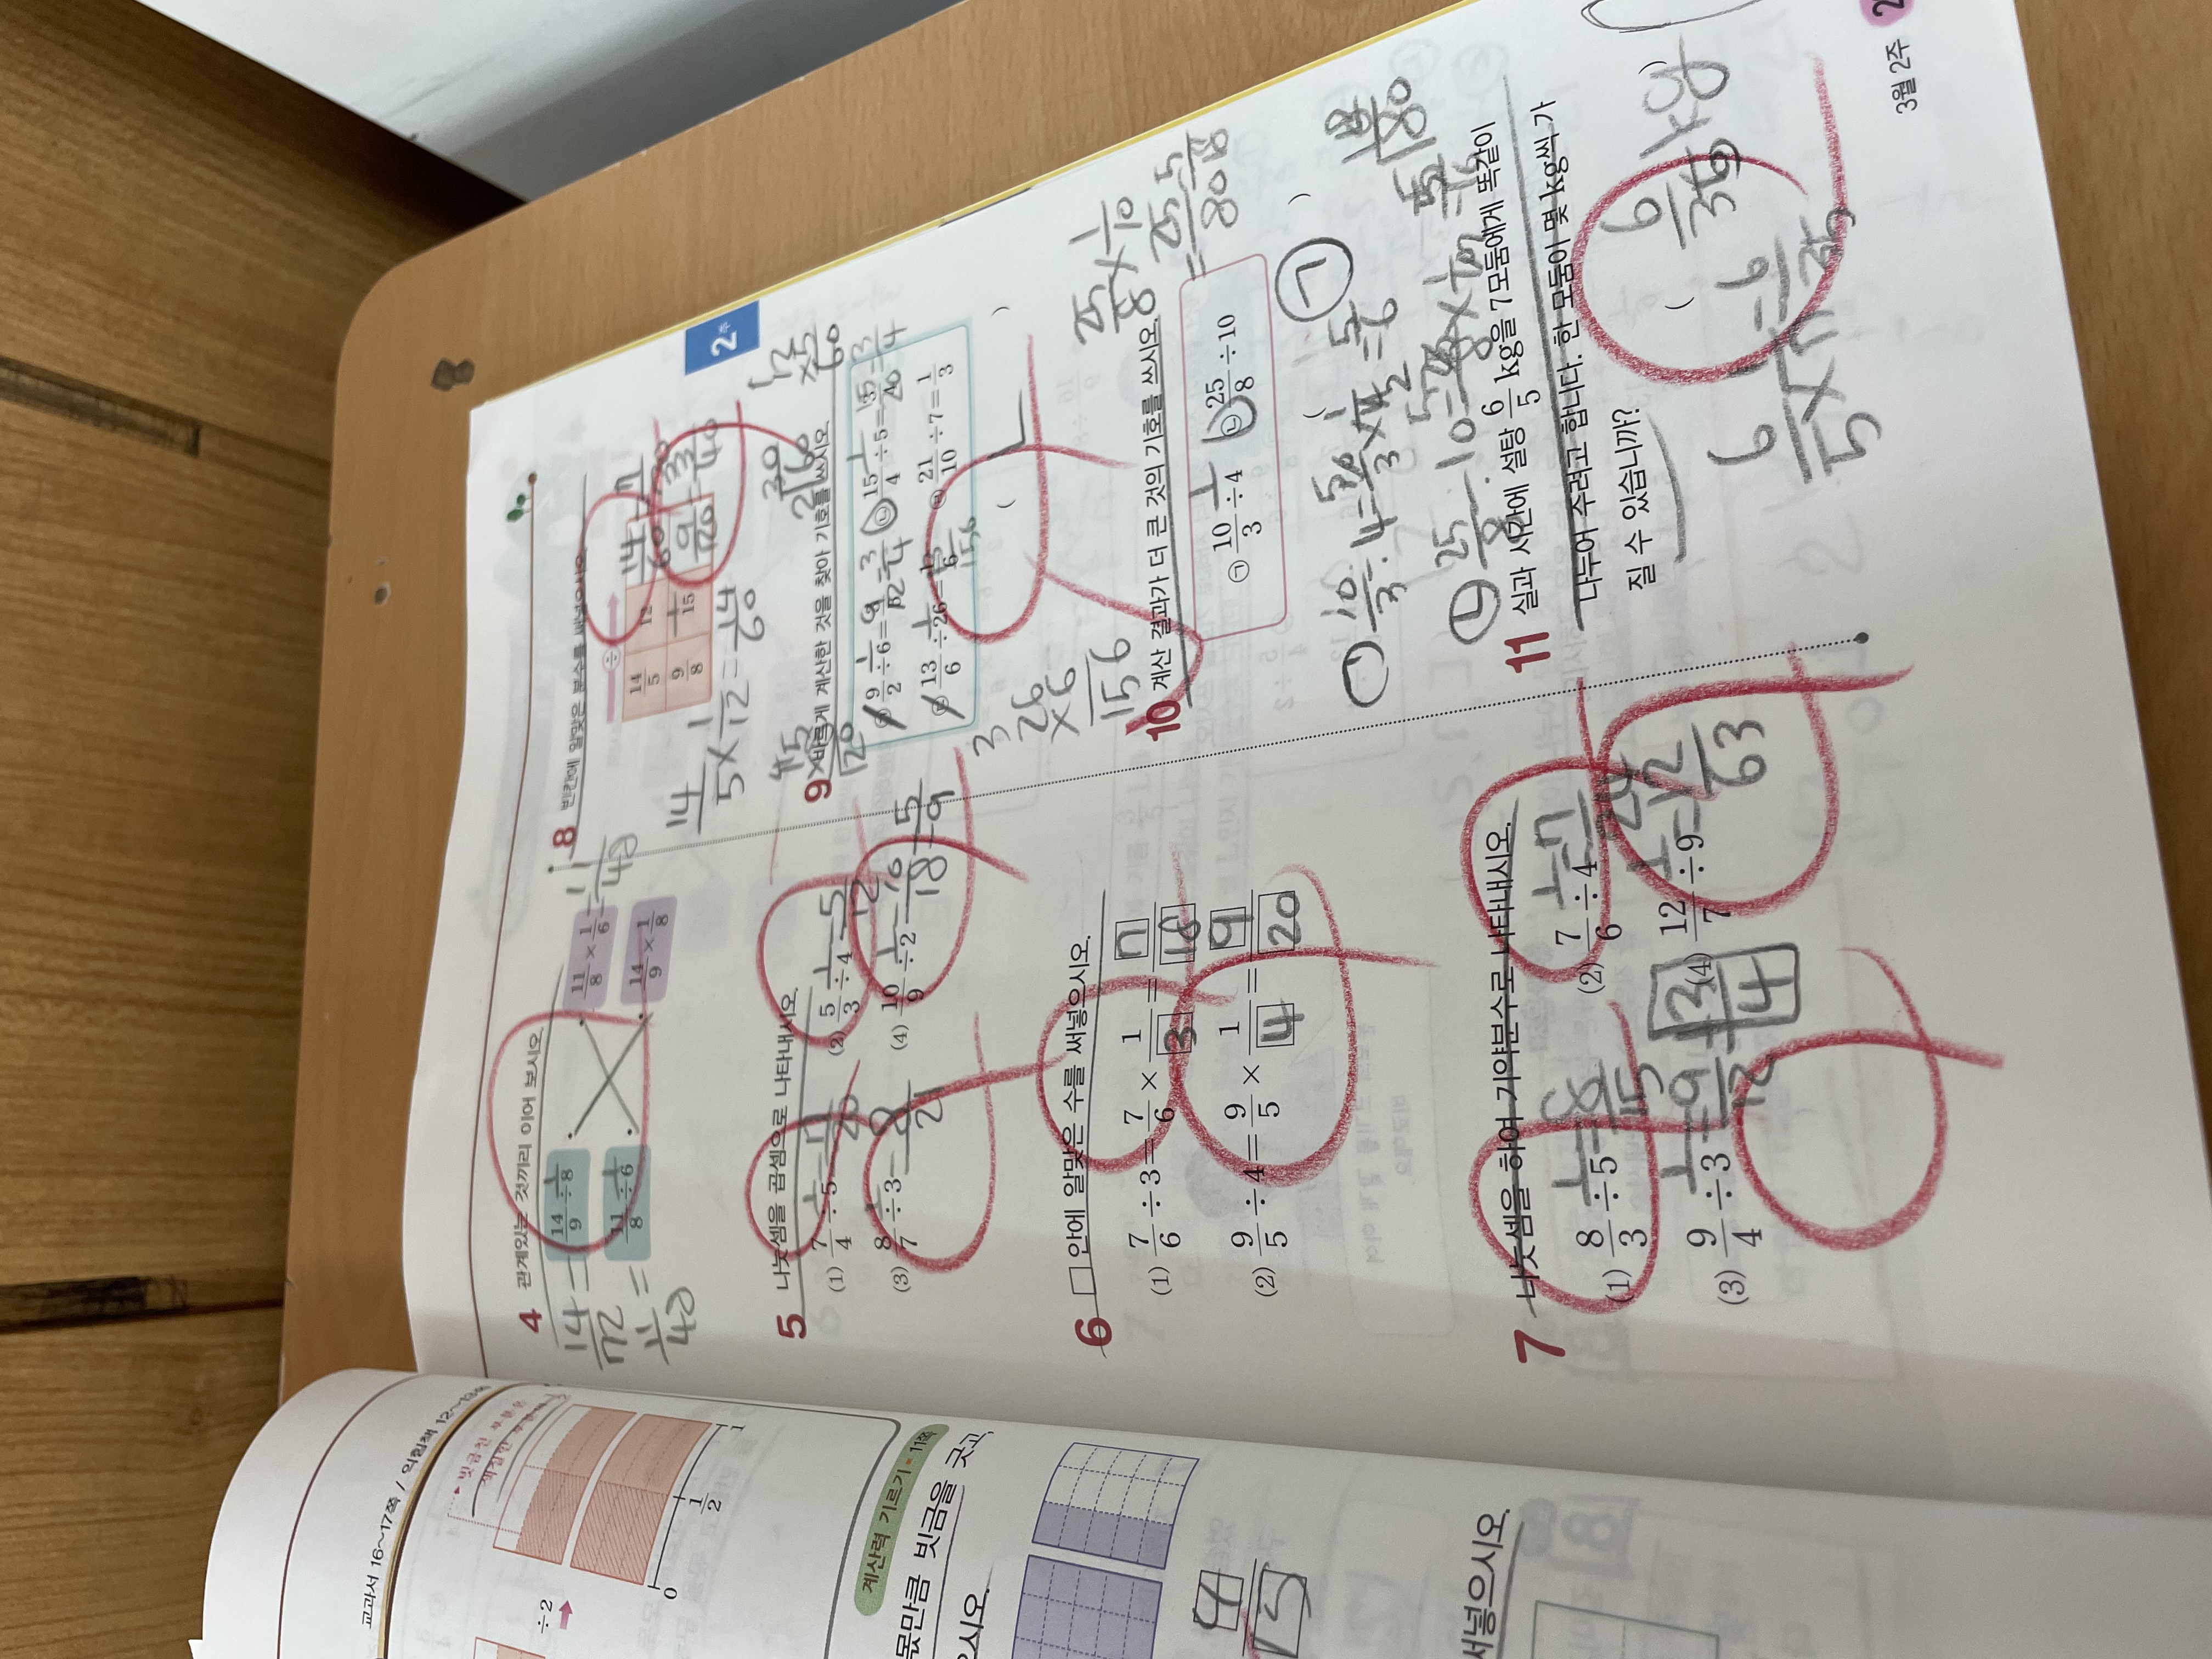 교과서 16~17쪽 / 익힘책 12~13쪽
÷2
0
1/2
1
계산력 기르기 11쪽
몫만큼 빗금을 긋고,
으시오.
4/15
써넣으시오.
4 관계있는 것끼리 이어 보시오.
14/72 = 14/9 ÷ 8
11/8 × 1/6 = 11/48
11/48 = 11/8 ÷ 6
14/9 × 1/8
5 나눗셈을 곱셈으로 나타내시오.
(1) 7/4 ÷ 5 = 7/20
(2) 5/3 ÷ 4 = 5/12
(3) 8/7 ÷ 3 = 8/21
(4) 10/9 ÷ 2 = 10/18 = 5/9
6 □ 안에 알맞은 수를 써넣으시오.
(1) 7/6 ÷ 3 = 7/6 × 1/3 = 7/18
(2) 9/5 ÷ 4 = 9/5 × 1/4 = 9/20
7 나눗셈을 하여 기약분수로 나타내시오.
(1) 8/3 ÷ 5 = 8/15
(2) 7/6 ÷ 4 = 7/24
(3) 9/4 ÷ 3 = 9/12 = 3/4
(4) 12/7 ÷ 9 = 12/63
2주
8 빈칸에 알맞은 분수를 써넣으시오.
÷
14/5 12 14/60
9/8 15
14/5 × 1/12 = 14/60
9 바르게 계산한 것을 찾아 기호를 쓰시오.
㉠ 9/2 ÷ 6 = 9/12 = 3/4 ㉡ 15/4 ÷ 5 = 15/20 = 3/4
㉢ 13/6 ÷ 26 = 13/156 ㉣ 21/10 ÷ 7 = 1/3
( ㄴ )
26
×6
156
10 계산 결과가 더 큰 것의 기호를 쓰시오.
25/8 × 1/10
㉠ 10/3 ÷ 4 ㉡ 25/8 ÷ 10
( ㄱ )
11 실과 시간에 설탕 6/5 kg을 7모둠에게 똑같이
나누어 주려고 합니다. 한 모둠이 몇 kg씩 가
질 수 있습니까?
( 6/35 kg )
6/5 × 1/7 = 6/35
3월 2주